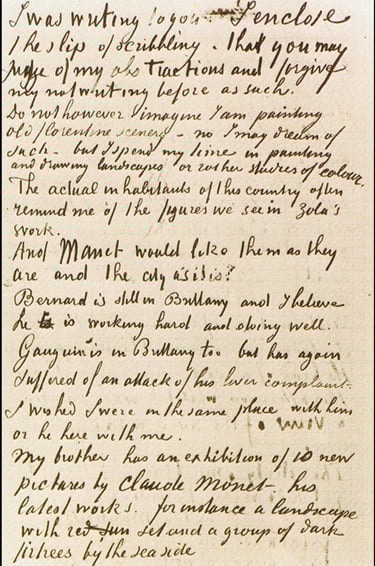 I was writing to you I enclose
the slip of scribbling. that you may
judge of my abstractions and forgive
my not writing before as such.
Do not however imagine I am painting
old florentine scenery - no I may dream of
such - but I spend my time in painting
and drawing landscapes or rather studies of colour.
The actual inhabitants of this country often
remind me of the figures we see in Zola's
work.
And Manet would like them as they
are and the city as it is?
Bernard is still in Brittany and I believe
he is working hard and doing well.
Gauguin is in Brittany too but has again
suffered of an attack of his liver complaint.
I wished I were in the same place with him
or he here with me.
My brother has an exhibition of 10 new
pictures by Claude Monet - his
latest works. for instance a landscape
with red sun set and a group of dark
firtrees by the seaside